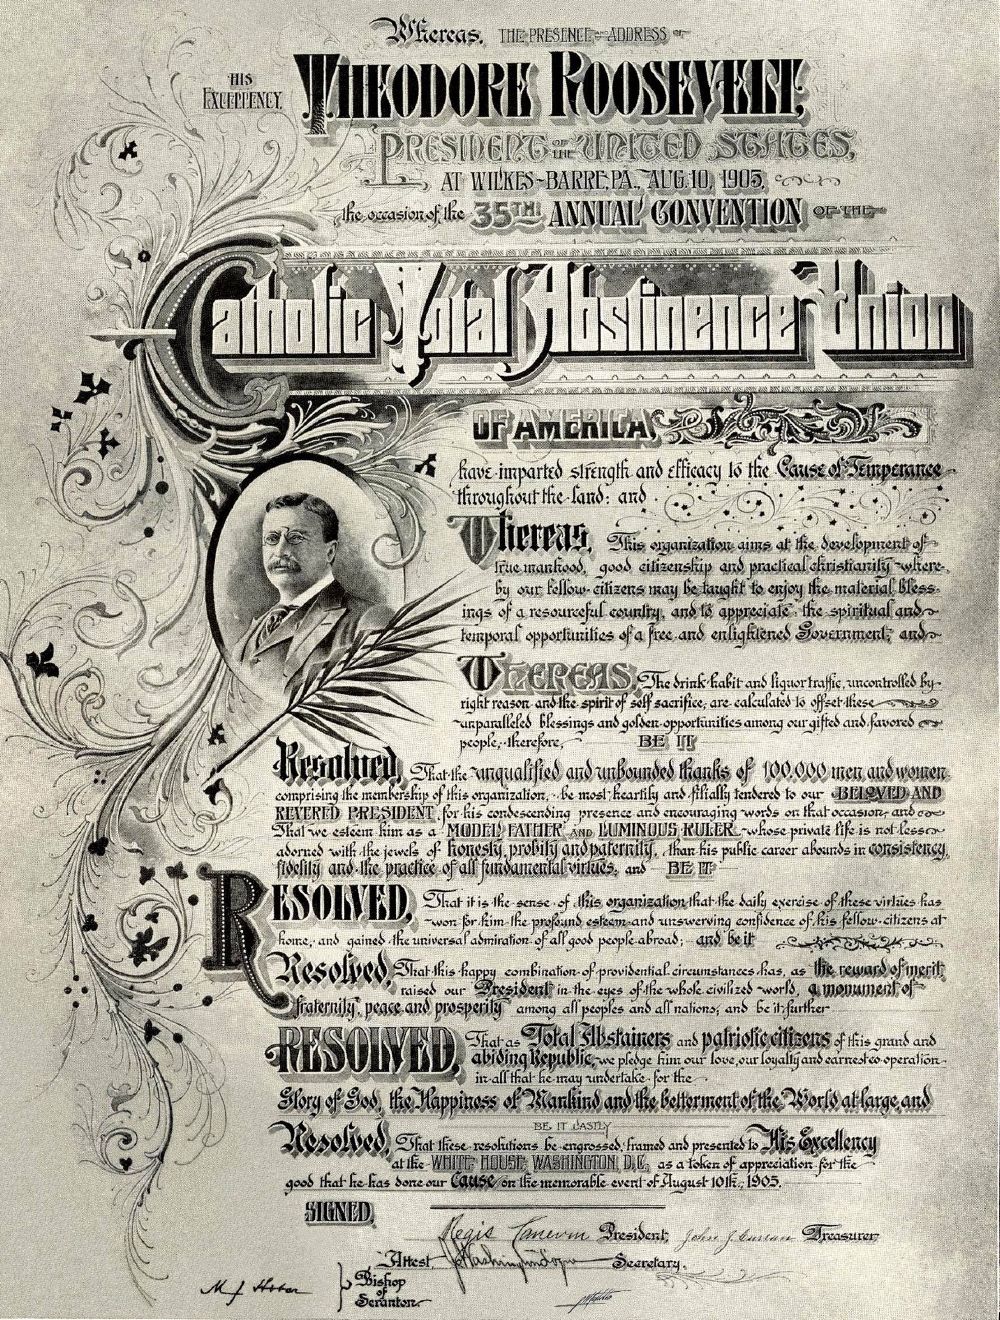 Whereas, THE PRESENCE AND ADDRESS OF
HIS EXCELLENCY, THEODORE ROOSEVELT,
PRESIDENT OF THE UNITED STATES,
AT WILKES-BARRE, PA., AUG. 10, 1905,
the occasion of the 35TH ANNUAL CONVENTION OF THE
Catholic Total Abstinence Union
OF AMERICA,
have imparted strength and efficacy to the Cause of Temperance
throughout the land; and
Whereas, This organization aims at the development of
true manhood, good citizenship and practical christianity where-
by our fellow-citizens may be taught to enjoy the material bless-
ings of a resourceful country, and to appreciate the spiritual and
temporal opportunities of a free and enlightened Government; and
WHEREAS, The drink habit and liquor traffic, uncontrolled by
right reason and the spirit of self sacrifice, are calculated to offset these
unparalleled blessings and golden opportunities among our gifted and favored
people, therefore, BE IT
Resolved, That the unqualified and unbounded thanks of 100,000 men and women
comprising the membership of this organization, be most heartily and filially tendered to our BELOVED AND
REVERED PRESIDENT for his condescending presence and encouraging words on that occasion; and
That we esteem him as a MODEL FATHER AND LUMINOUS RULER whose private life is not less
adorned with the jewels of honesty, probity and paternity, than his public career abounds in consistency,
fidelity and the practice of all fundamental virtues; and BE IT
RESOLVED, That it is the sense of this organization that the daily exercise of these virtues has
won for him the profound esteem and unswerving confidence of his fellow-citizens at
home, and gained the universal admiration of all good people abroad; and be it
Resolved, That this happy combination of providential circumstances has, as the reward of merit,
raised our President in the eyes of the whole civilized world, a monument of
fraternity, peace and prosperity among all peoples and all nations; and be it further
RESOLVED, That as Total Abstainers and patriotic citizens of this grand and
abiding Republic, we pledge him our love, our loyalty and earnest co-operation
in all that he may undertake for the
Glory of God, the Happiness of Mankind and the betterment of the World at large, and
BE IT LASTLY
Resolved, That these resolutions be engrossed, framed and presented to His Excellency
at the WHITE HOUSE, WASHINGTON, D.C. as a token of appreciation for the
good that he has done our Cause on the memorable event of August 10th., 1905.
SIGNED,
Regis Canevin President, John J Curran Treasurer,
Attest, J. Washington Logue Secretary.
M J Hoban Bishop of Scranton.